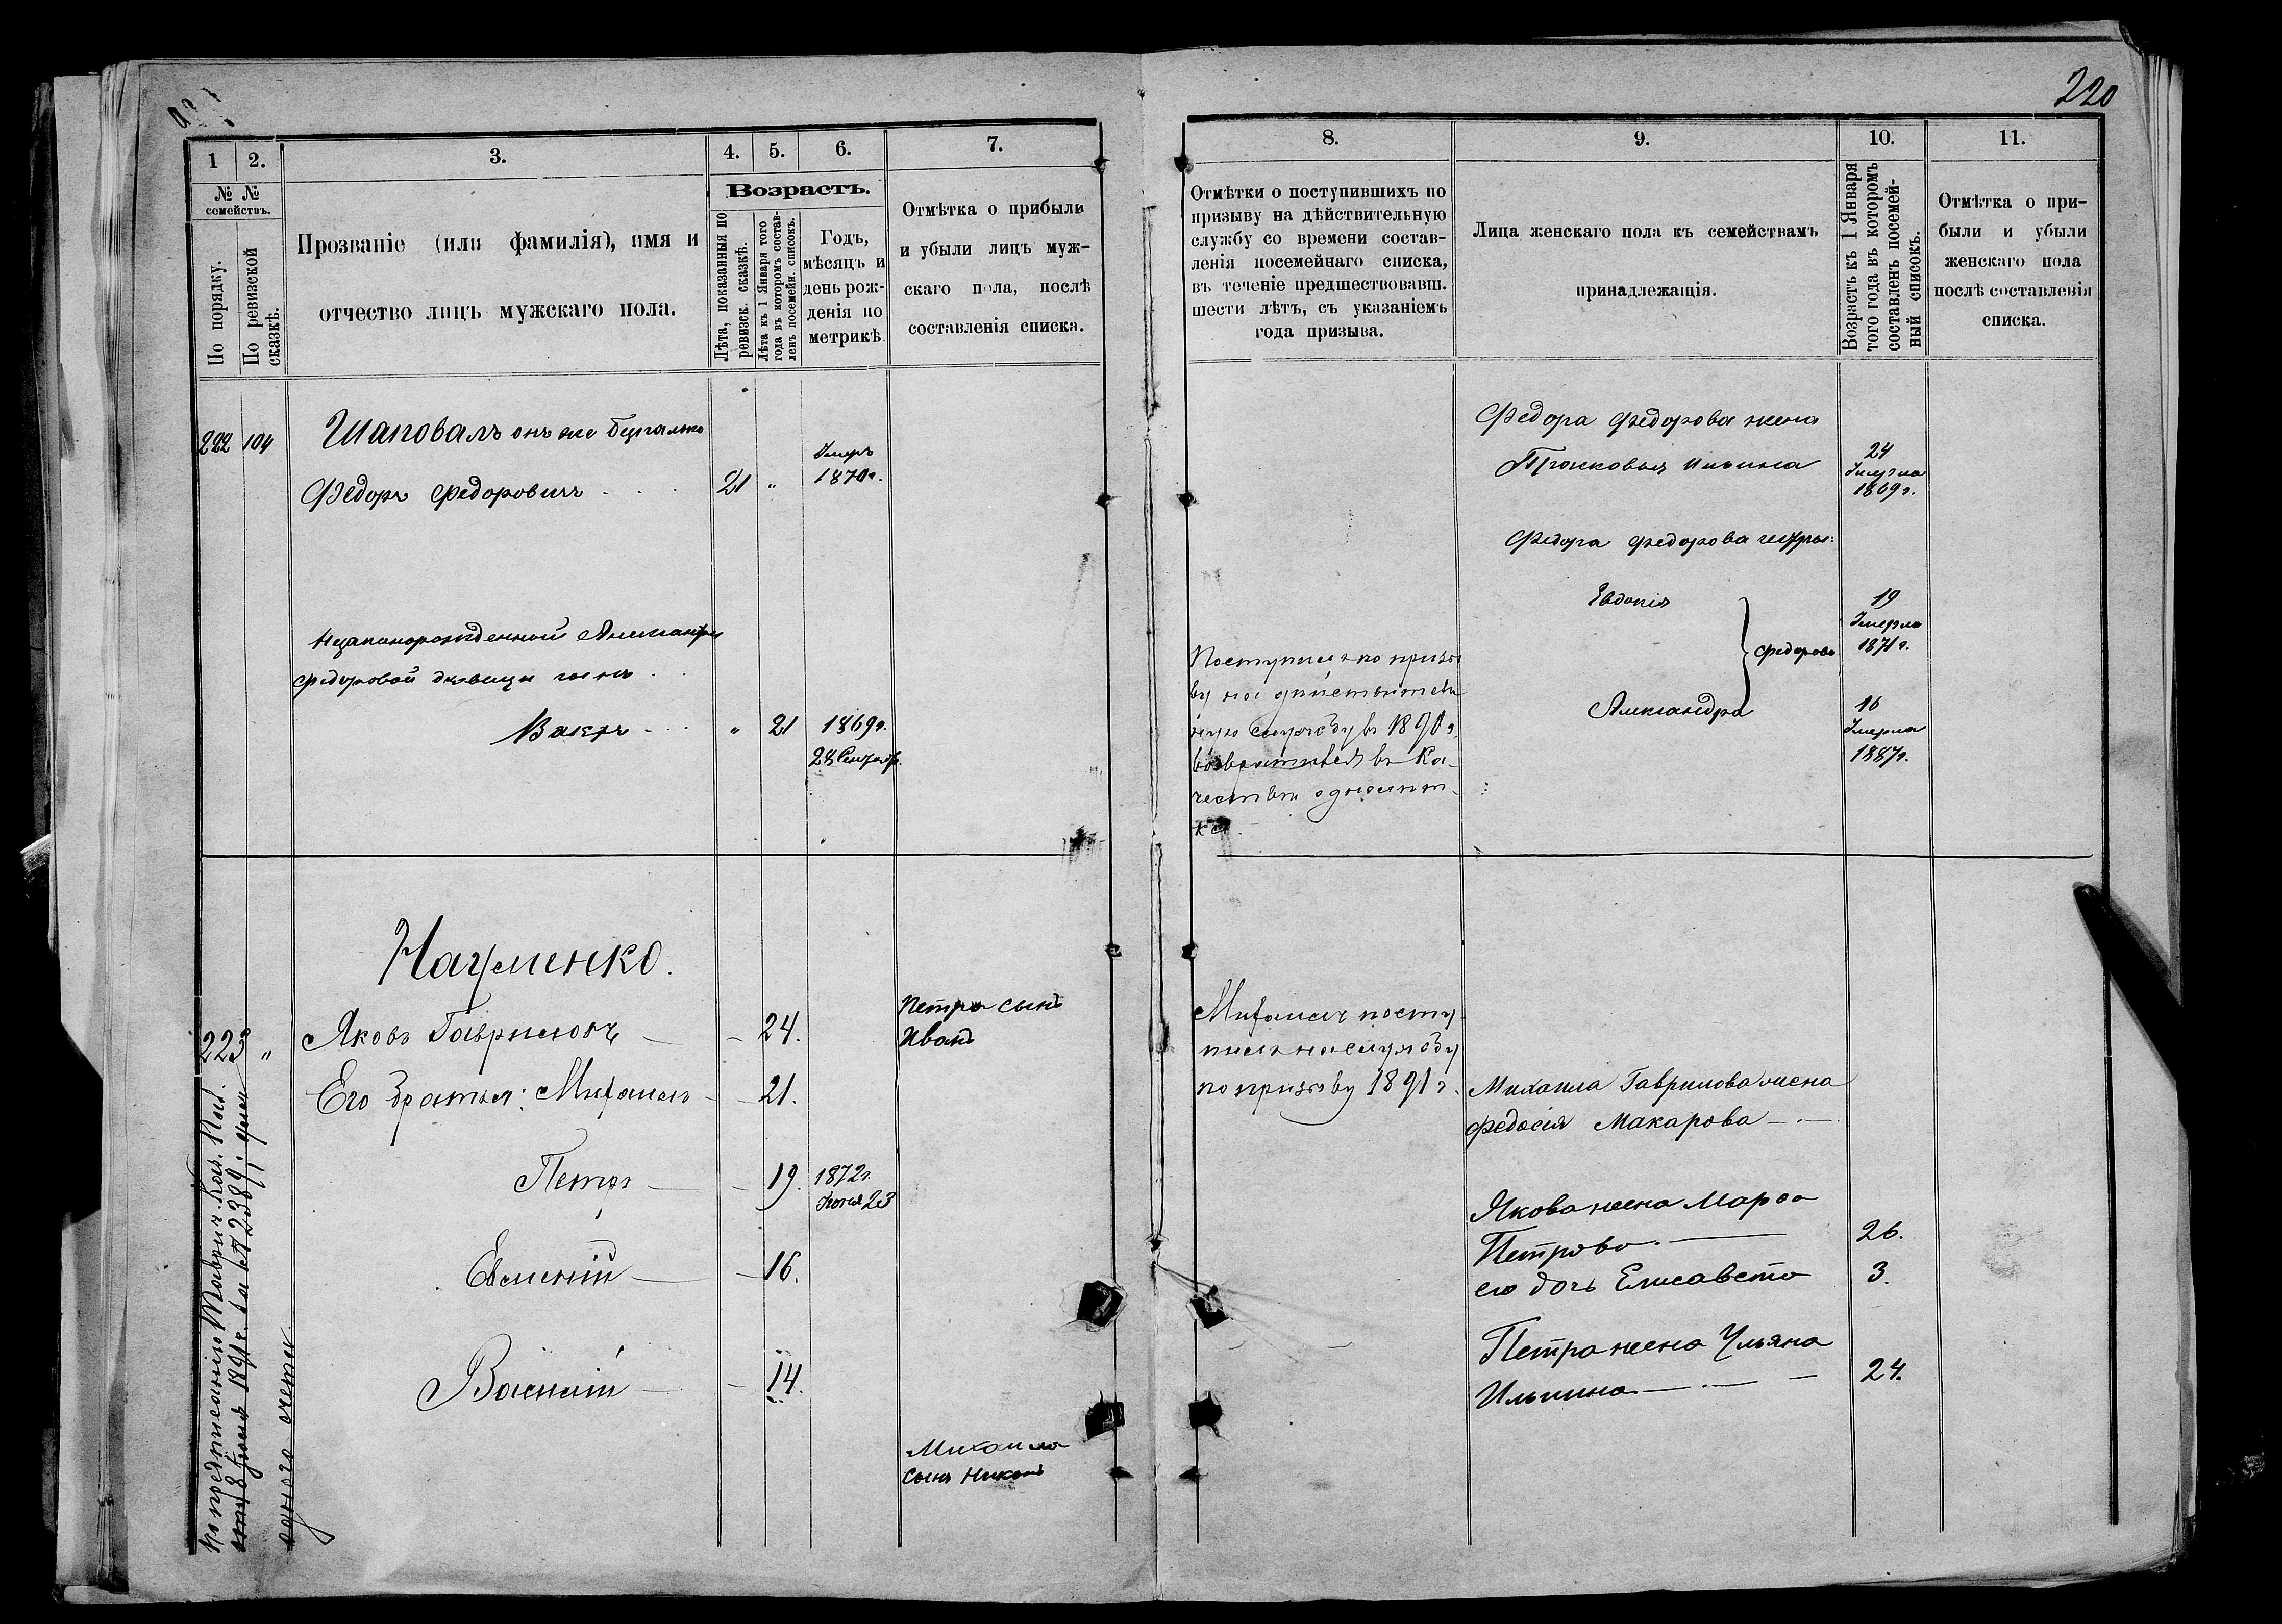 220
1
2.
3.
4.
5.
6.
7.
№ №
семействъ.
По порядку.
По ревизской
сказкѣ.
Прозваніе (или фамилія), имя и
отчество лицъ мужскаго пола.
Возрастъ.
Лѣта, показанныя по
ревизск. сказкѣ.
Лѣта къ 1 Января того
года въ которомъ состав-
ленъ посемейн. списокъ.
Годъ,
мѣсяцъ и
день рож-
денія по
метрикѣ
Отмѣтка о прибыли
и убыли лицъ муж-
скаго пола, послѣ
составленія списка.
222 104
Шаповалъ онъ же
Федоръ Федоровичъ 21 "
Умеръ
1870г.
Незаконорожденной Александры
Федоровой дѣвицы сынъ
" 21 1869г.
28 Сентяб.
Науменко.
223 "
Яковъ Гавриловъ 24.
Его братья: Михаилъ 21.
Петръ 19. 1872г.
Іюня 23
Евменій 16.
Василій 14.
Петра сынъ
Иванъ
Михаила
сынъ Никонъ
по предписанію Таврич. Каз. Пал.
8 Іюля 1891г. за № 2389.
8.
9.
10.
11.
Отмѣтки о поступившихъ по
призыву на дѣйствительную
службу со времени состав-
ленія посемейнаго списка,
въ теченіе предшествовавш.
шести лѣтъ, съ указаніемъ
года призыва.
Лица женскаго пола къ семействамъ
принадлежащія.
Возрастъ къ 1 Января
того года въ которомъ
составленъ посемей-
ный списокъ.
Отмѣтка о при-
были и убыли
женскаго пола
послѣ составленія
списка.
Федора Федорова жена
Прасковья Ильина
24
Умерла
1869г.
Федора Федорова сестры:
Евдокія
19
Умерла
1871г.
Федорова
Александра
16
Умерла
1887г.
Поступилъ по призы
ву на дѣйствитель
ную службу въ 1890г.
возвратился въ ка-
чествѣ
Михаилъ посту
пилъ на службу
по призыву 1891г.
Михаила Гаврилова жена
Федосія Макарова
Якова жена Марфа
Петрова 26.
его дочь Елисавета 3.
Петра жена Ульяна
Ильина 24.